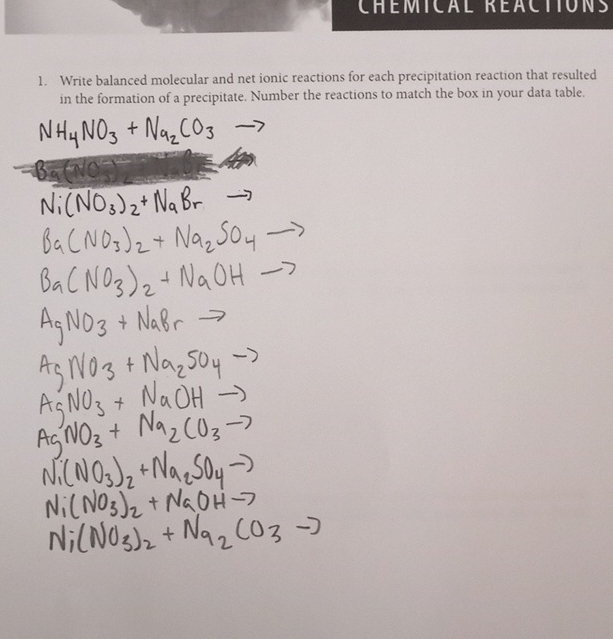 CHEMICAL REACTIONS
1. Write balanced molecular and net ionic reactions for each precipitation reaction that resulted
in the formation of a precipitate. Number the reactions to match the box in your data table.
NH₄NO₃ + Na₂CO₃ →
Ba(NO₃)₂
Ni(NO₃)₂ + NaBr →
Ba(NO₃)₂ + Na₂SO₄ →
Ba(NO₃)₂ + NaOH →
AgNO₃ + NaBr →
AgNO₃ + Na₂SO₄ →
AgNO₃ + NaOH →
AgNO₃ + Na₂CO₃ →
Ni(NO₃)₂ + Na₂SO₄ →
Ni(NO₃)₂ + NaOH →
Ni(NO₃)₂ + Na₂CO₃ →